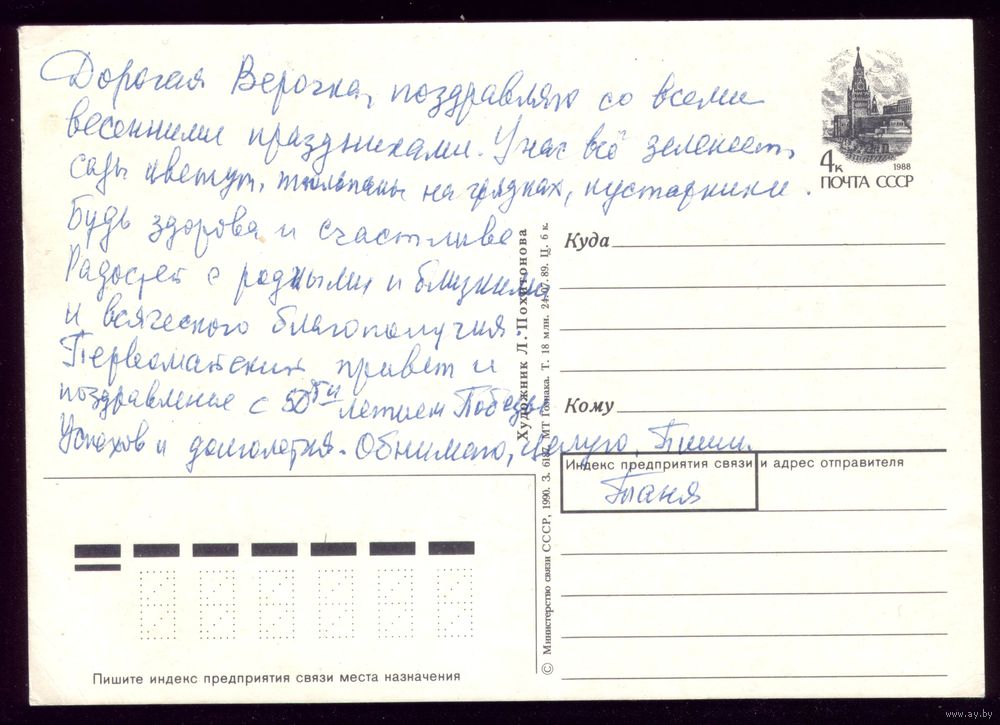 Дорогая Верочка, поздравляю со всеми
весенними праздниками. У нас всё зеленеет,
сады цветут, тюльпаны на грядках, кустарники.
Будь здорова и счастлива
Радостей с родными и близкими
и всяческого благополучия.
Первомайский привет и
поздравление с 50ти летием Победы
Успехов и долголетия. Обнимаю, целую, Пиши.
Таня
4к
1988
ПОЧТА СССР
Куда
Кому
Индекс предприятия связи и адрес отправителя
Художник Л. Похитонова
© Министерство связи СССР, 1990. З. 6187. МТ Гознака. Т. 18 млн. 24.07.89. Ц. 6 к.
Пишите индекс предприятия связи места назначения
www.ay.by